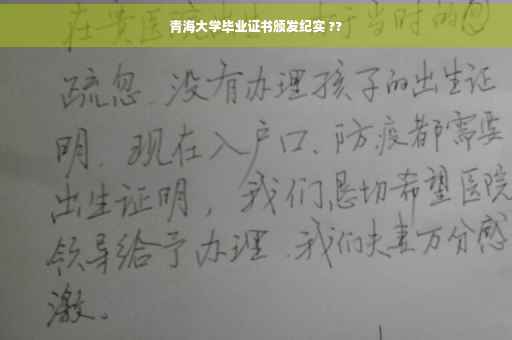 青海大学毕业证书颁发纪实 ??
在贵医院出生,由于当时的
疏忽.没有办理孩子的出生证
明.现在入户口、防疫都需要
出生证明,我们恳切希望医院
领导给予办理.我们夫妻万分感
激。